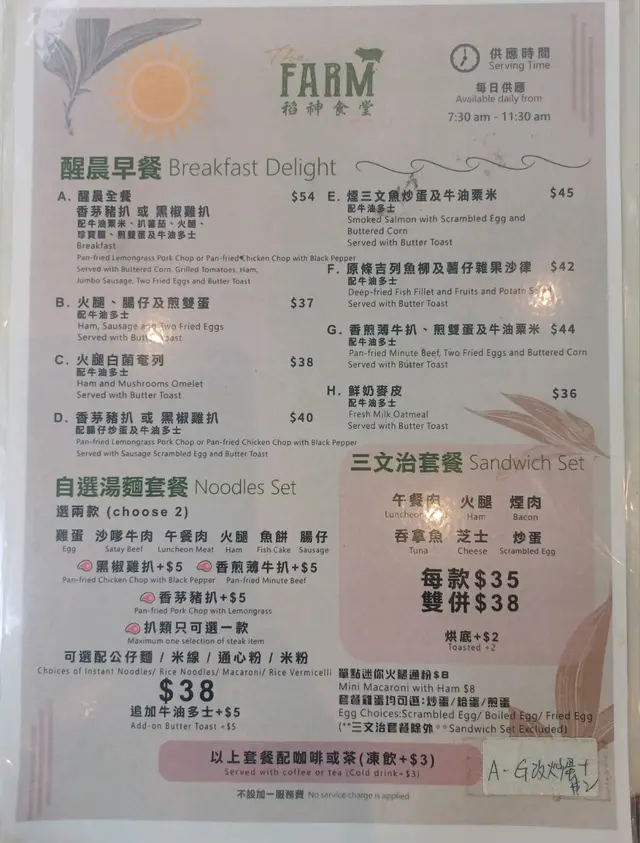 The
FARM
稻神食堂
供應時間
Serving Time
每日供應
Available daily from
7:30 am - 11:30 am
醒晨早餐 Breakfast Delight
A. 醒晨全餐 $54
香茅豬扒 或 黑椒雞扒
配牛油粟米、扒蕃茄、火腿、
珍寶腸、煎雙蛋及牛油多士
Breakfast
Pan-fried Lemongrass Pork Chop or Pan-fried Chicken Chop with Black Pepper
Served with Buttered Corn, Grilled Tomatoes, Ham,
Jumbo Sausage, Two Fried Eggs and Butter Toast
B. 火腿、腸仔及煎雙蛋 $37
配牛油多士
Ham, Sausage and Two Fried Eggs
Served with Butter Toast
C. 火腿白菌奄列 $38
配牛油多士
Ham and Mushrooms Omelet
Served with Butter Toast
D. 香茅豬扒 或 黑椒雞扒 $40
配腸仔炒蛋及牛油多士
Pan-fried Lemongrass Pork Chop or Pan-fried Chicken Chop with Black Pepper
Served with Sausage Scrambled Egg and Butter Toast
E. 煙三文魚炒蛋及牛油粟米 $45
配牛油多士
Smoked Salmon with Scrambled Egg and
Buttered Corn
Served with Butter Toast
F. 原條吉列魚柳及薯仔雜果沙律 $42
配牛油多士
Deep-fried Fish Fillet and Fruits and Potato Salad
Served with Butter Toast
G. 香煎薄牛扒、煎雙蛋及牛油粟米 $44
配牛油多士
Pan-fried Minute Beef, Two Fried Eggs and Buttered Corn
Served with Butter Toast
H. 鮮奶麥皮 $36
配牛油多士
Fresh Milk Oatmeal
Served with Butter Toast
自選湯麵套餐 Noodles Set
選兩款 (choose 2)
雞蛋 沙嗲牛肉 午餐肉 火腿 魚餅 腸仔
Egg Satay Beef Luncheon Meat Ham Fish Cake Sausage
黑椒雞扒+$5 香煎薄牛扒+$5
Pan-fried Chicken Chop with Black Pepper Pan-fried Minute Beef
香茅豬扒+$5
Pan-fried Pork Chop with Lemongrass
扒類只可選一款
Maximum one selection of steak item
可選配公仔麵 / 米線 / 通心粉 / 米粉
Choices of Instant Noodles/ Rice Noodles/ Macaroni/ Rice Vermicelli
$38
追加牛油多士+$5
Add-on Butter Toast +$5
三文治套餐 Sandwich Set
午餐肉 火腿 煙肉
Luncheon Ham Bacon
吞拿魚 芝士 炒蛋
Tuna Cheese Scrambled Egg
每款$35
雙併$38
烘底+$2
Toasted +2
單點迷你火腿通粉$8
Mini Macaroni with Ham $8
套餐雞蛋均可選:炒蛋/烚蛋/煎蛋
Egg Choices:Scrambled Egg/ Boiled Egg/ Fried Egg
(**三文治套餐除外 **Sandwich Set Excluded)
以上套餐配咖啡或茶(凍飲+$3)
Served with coffee or tea (Cold drink+$3)
不設加一服務費 No service charge is applied
A-G改炒蛋+
$2